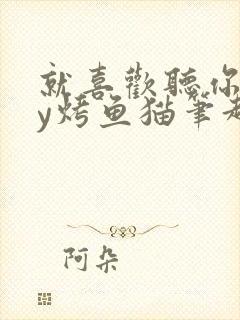 就喜歡聽你
y烤鱼猫筆
阿朵